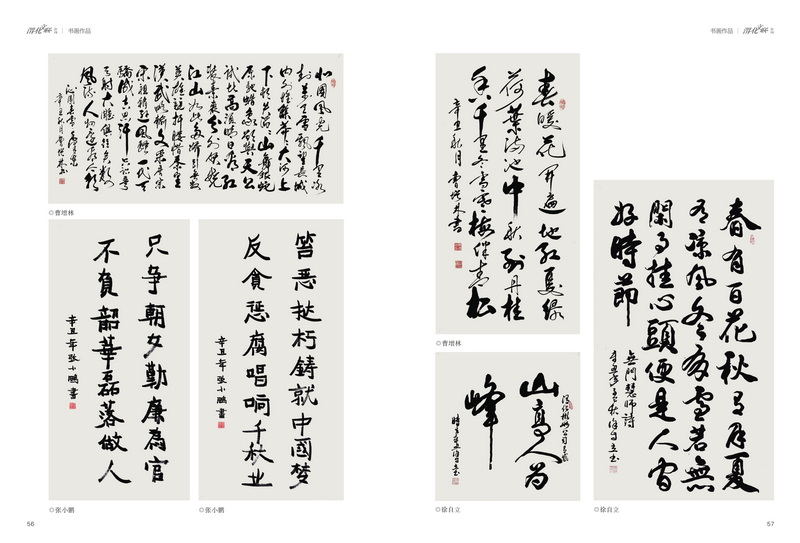 书画作品
北國風光千里冰
封万里雪飘望長城
内外惟余莽莽大河上
下顿失滔滔山舞银蛇
原驰蜡象欲與天公
试比高须晴日看红
装素裹分外妖娆
江山如此多娇引无数
英雄竞折腰惜秦皇
汉武略输文采唐宗
宋祖稍逊風骚一代天
骄成吉思汗只识弯
弓射大雕俱往矣数
風流人物还看今朝
沁園春雪毛泽东
辛丑秋月曹增林
◎曹增林
只争朝夕勤廉為官
不負韶華磊落做人
辛丑年張小鵬書
◎张小鹏
笞恶挞朽鑄就中國梦
反貪惩腐唱响千秋业
辛丑年張小鵬書
◎张小鹏
56
书画作品
春暖花开遍地红夏绿
荷葉满池中秋到丹桂
香千里冬雪雪梅伴青松
辛丑秋月曹增林書
◎曹增林
山高人为
峰
◎徐自立
春有百花秋有月夏
有凉風冬有雪若無
閑事挂心頭便是人間
好時節
無門慧師詩
◎徐自立
57